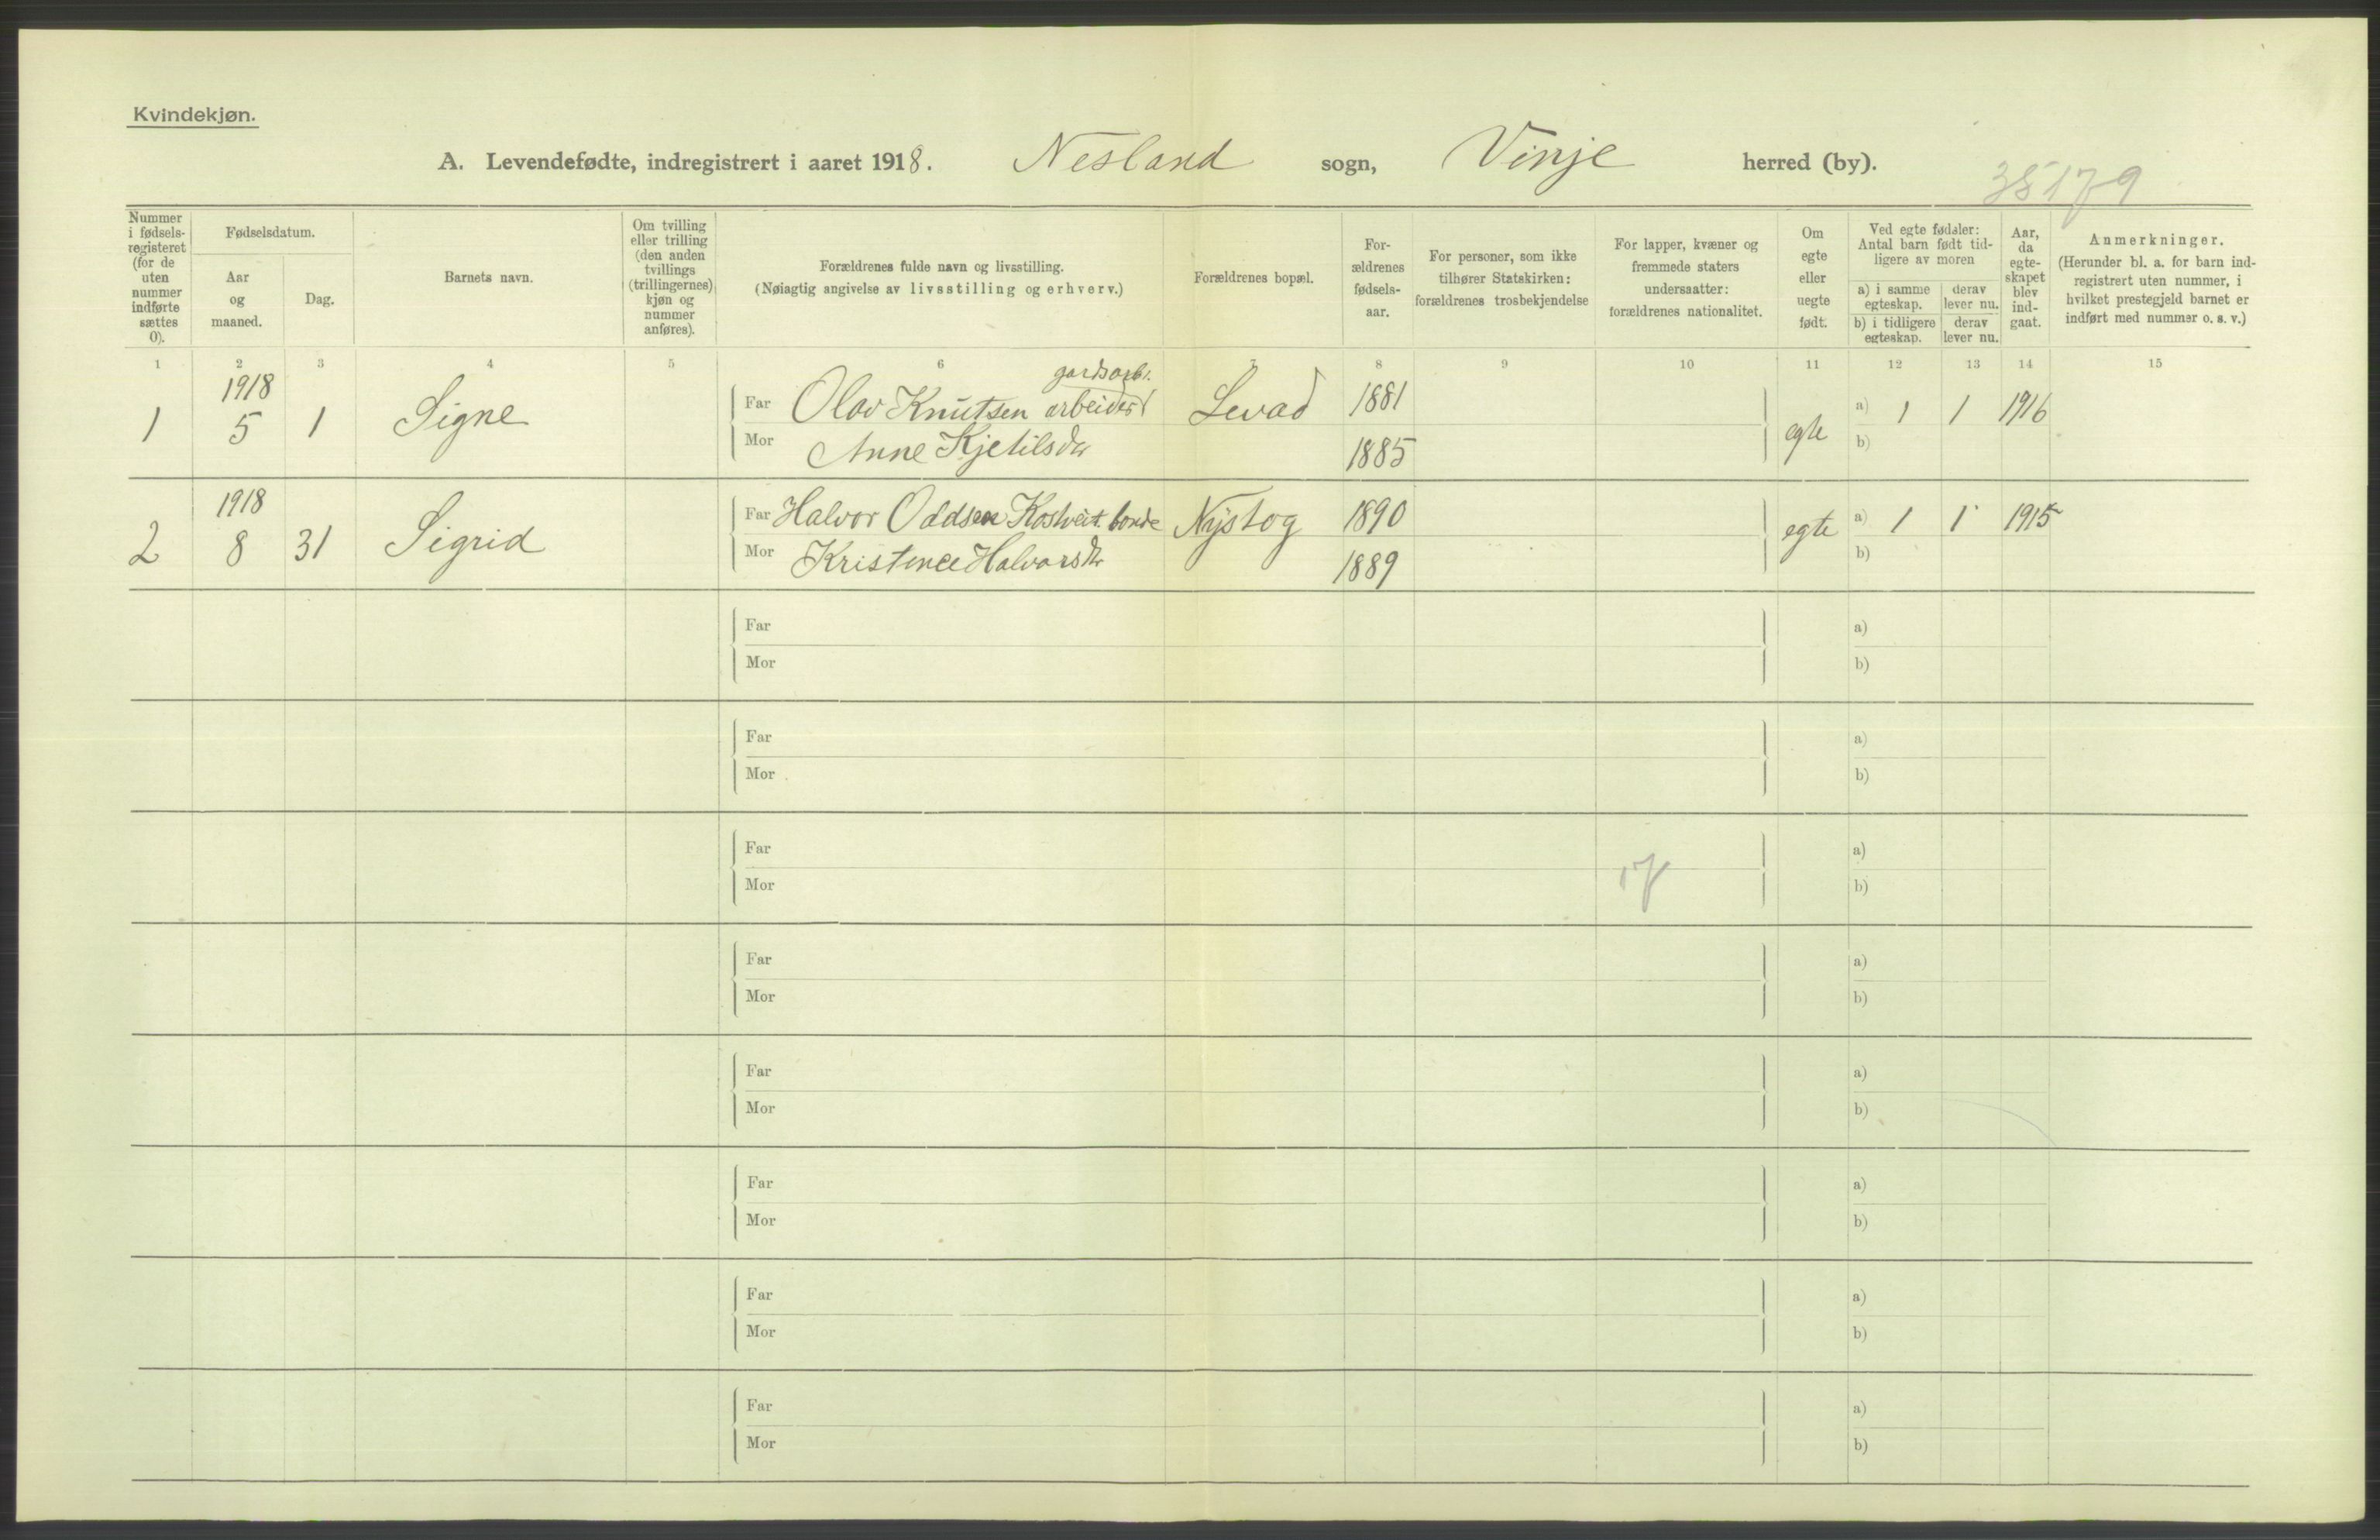 Kvindekjøn.
A. Levendefødte, indregistrert i aaret 1918. Nesland sogn, Vinje herred (by).
35179
Nummer i fødsels-registeret (for de uten nummer indførte sættes 0).
Fødselsdatum.
Aar og maaned.
Dag.
Barnets navn.
Om tvilling eller trilling (den anden tvillings (trillingernes) kjøn og nummer anføres).
Forældrenes fulde navn og livsstilling.
(Nøiagtig angivelse av livsstilling og erhverv.)
Forældrenes bopæl.
For-ældrenes fødsels-aar.
For personer, som ikke tilhører Statskirken: forældrenes trosbekjendelse
For lapper, kvæner og fremmede staters undersaatter: forældrenes nationalitet.
Om egte eller uegte født.
Ved egte fødsler: Antal barn født tid-ligere av moren
a) i samme egteskap.
derav lever nu.
b) i tidligere egteskap.
derav lever nu.
Aar, da egte-skapet blev ind-gaat.
Anmerkninger.
(Herunder bl. a. for barn ind-registrert uten nummer, i hvilket prestegjeld barnet er indført med nummer o. s. v.)
1 2 3 4 5 6 7 8 9 10 11 12 13 14 15
gardsarb.
1 1918 5 1 Signe Far Olav Knutsen arbeider Levad 1881 egte a) 1 1 1916
Mor Anne Kjetilsdr 1885 b)
2 1918 8 31 Sigrid Far Halvor Oddsen Kostveit. bonde Nystog 1890 egte a) 1 1 1915
Mor Kristence Halvorsdr 1889 b)
Far a)
Mor b)
Far a)
Mor b)
Far a)
17
Mor b)
Far a)
Mor b)
Far a)
Mor b)
Far a)
Mor b)
Far a)
Mor b)
Far a)
Mor b)